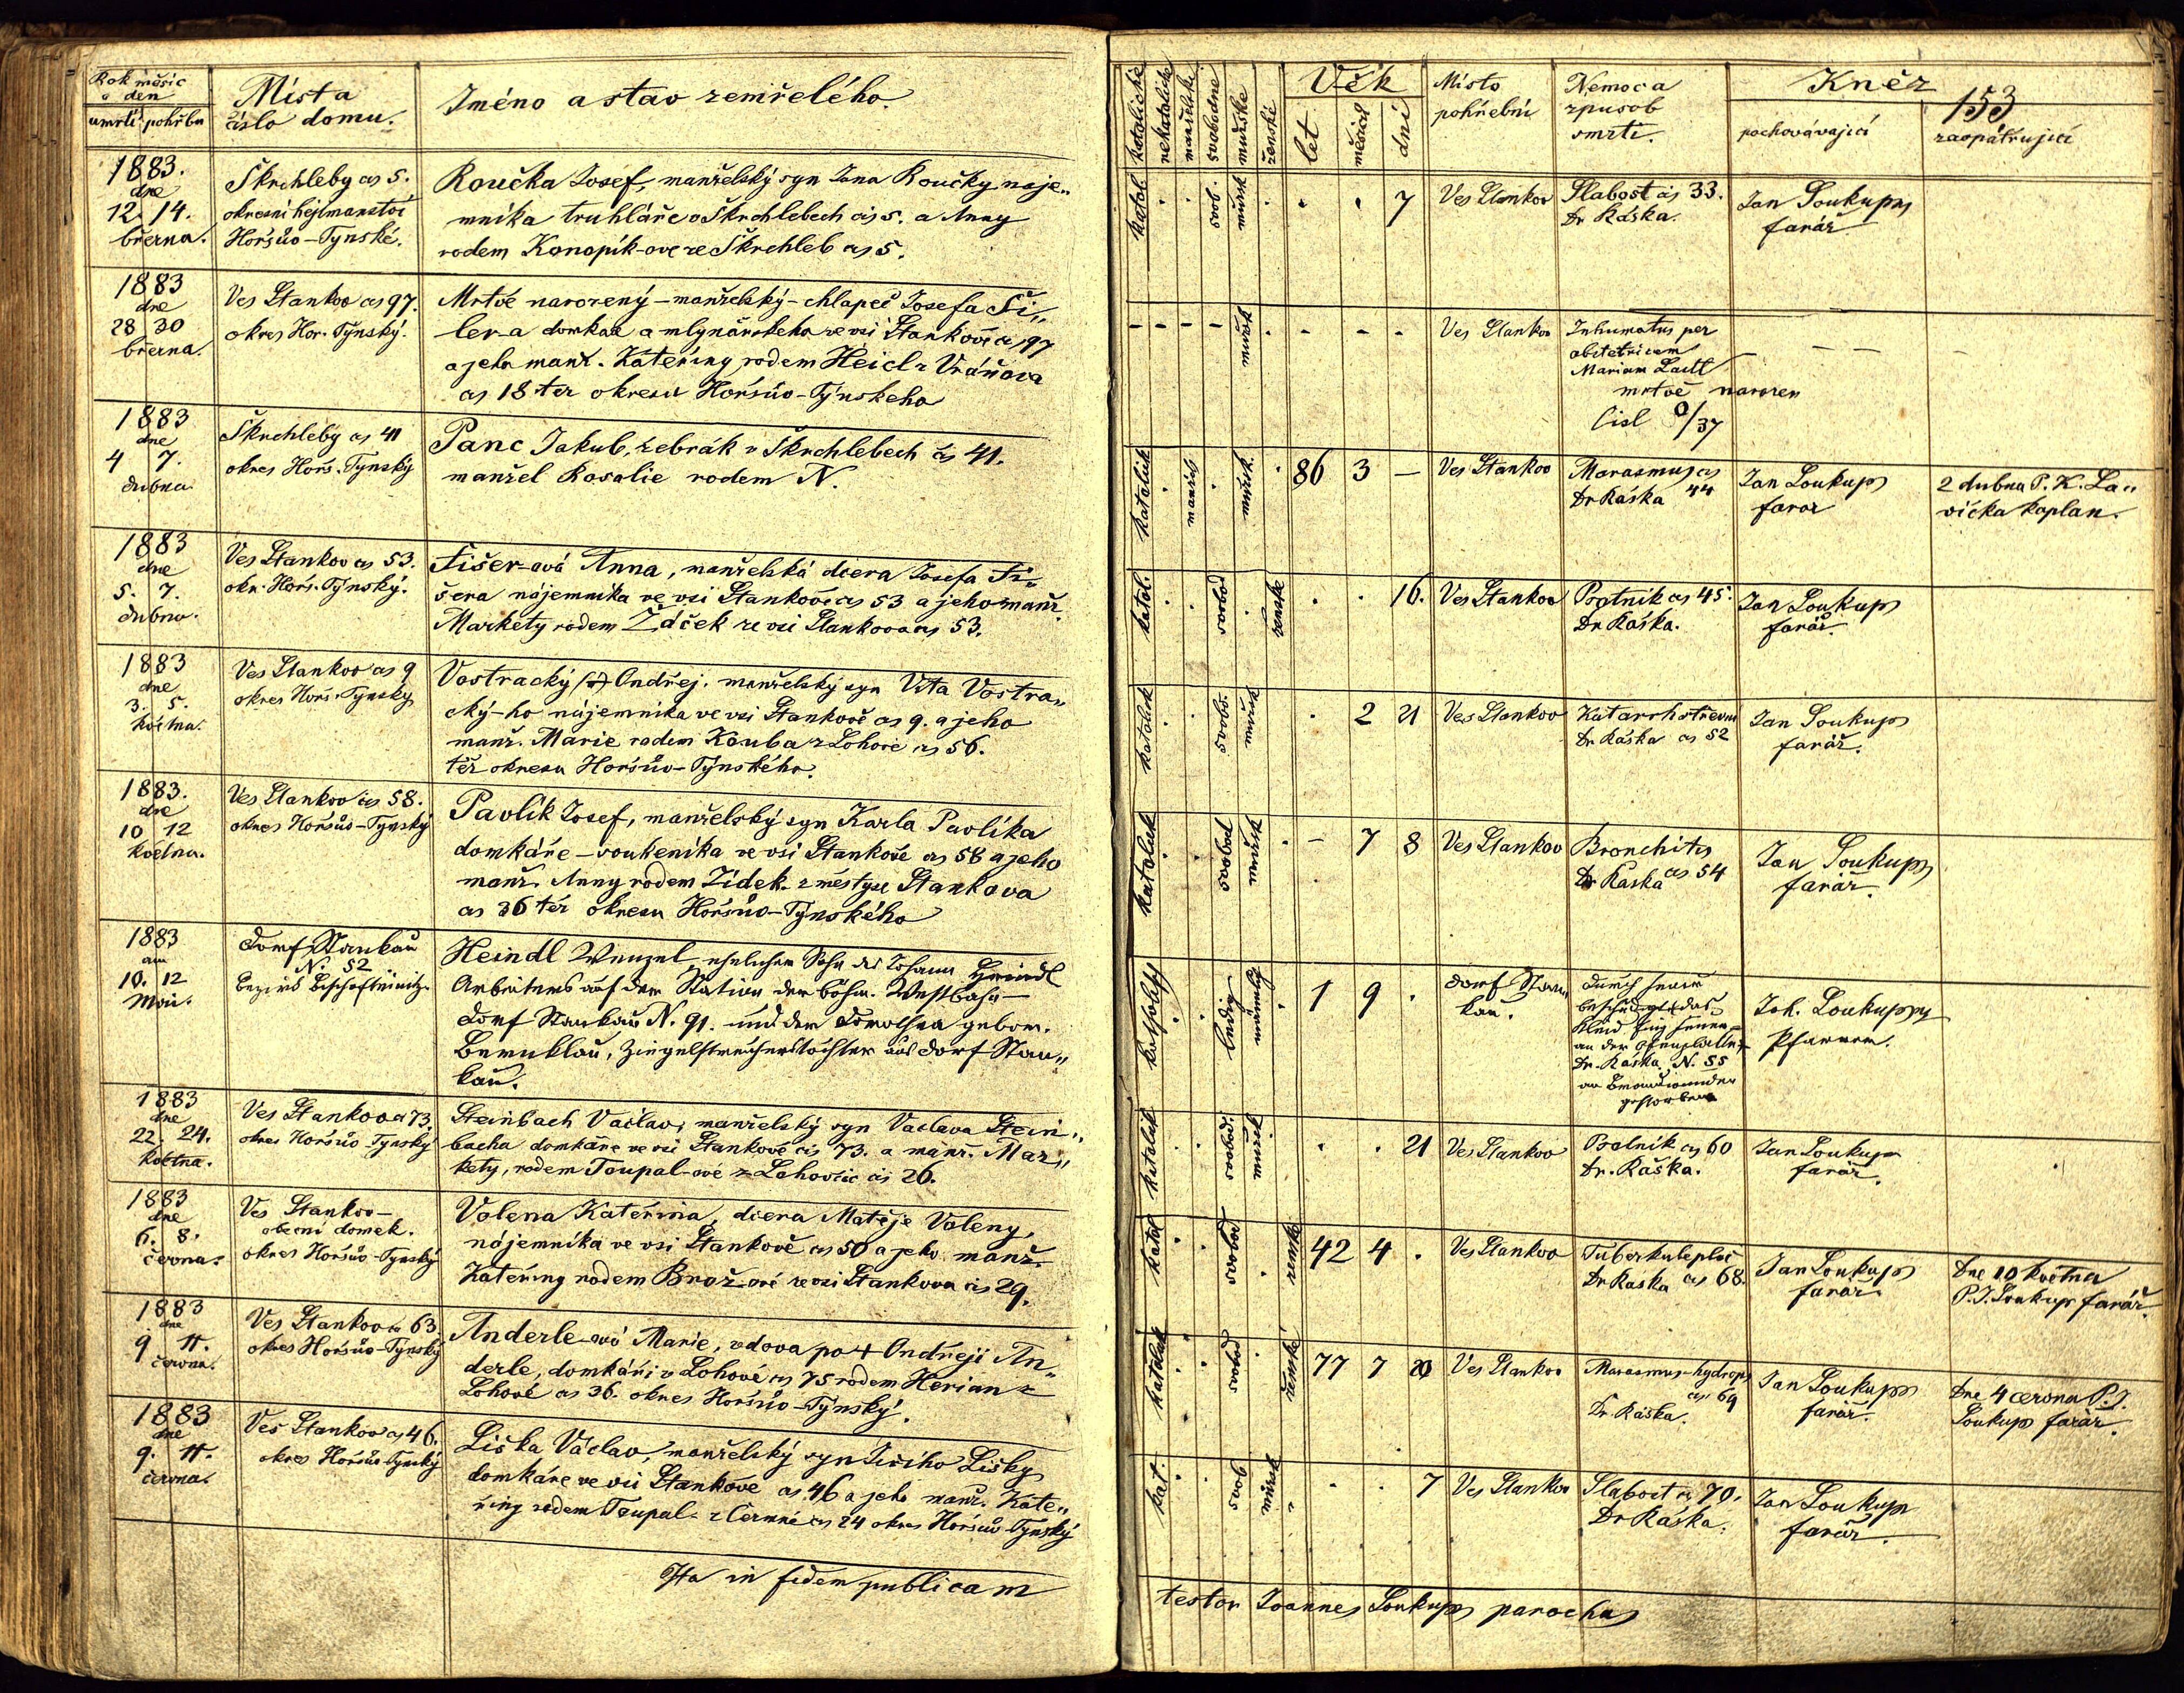 Rok měsíc
a den
úmrtí pohřbu
Místa
číslo domu.
Jméno a stav zemřelého.
1883.
dne
12. 14.
března.
Škrchleby čís 5.
okresní hejtmanství
Horšův-Týnské.
Roučka Josef, manželský syn Jana Roučky náje„
mníka truhláře v Škrchlebech čís 5. a Anny
rodem Konopík-ove ze Škrchleb čís 5.
1883
dne
28 30
března.
Ves Stankov čís 97.
okres Hor. Týnský.
Mrtvě narozený – manželský – chlapec Josefa Ši„
ler-a domkáře a mlynárskeho ve vsi Stankově čís 97
a jeho manž. Kateřiny rodem Heidl z Vránova
čís 18 též okresu Horšův-Týnskeho
1883
dne
4 7.
dubna.
Škrchleby čís 41
okres Horš. Týnský
Panc Jakub, žebrák v Škrchlebech čís 41.
manžel Rosalie rodem N.
1883
dne
5. 7.
dubna.
Ves Stankov čís 53.
okr. Horš. Týnský.
Fišer-ová Anna, manželská dcera Josefa Fi„
šera nájemníka ve vsi Stankově čís 53 a jeho manž.
Markéty rodem Žáček ze vsi Stankova čís 53.
1883
dne
3. 5.
května.
Ves Stankov čís 9
okres Horš. Týnský
Vostracký Ondřej, manželský syn Víta Vostra„
cký-ho nájemníka ve vsi Stankově čís 9. a jeho
manž. Marie rodem Kouba z Lohové čís 56.
též okresu Horšův-Týnského.
1883.
dne
10 12
května.
Ves Stankov čís 58.
okres Horšův-Týnský
Pavlík Josef, manželský syn Karla Pavlíka
domkáře – soukeníka ve vsi Stankově čís 58 a jeho
manž. Anny rodem Zídek z městyse Stankova
čís 36 též okresu Horšův-Týnského
1883
am
10. 12
Mai.
Dorf Stankau
N. 52
Bezirk Bischofteinitz.
Heindl Wenzel, ehelicher Sohn des Johann Heindl
Arbeiters auf der Station der böhm. Westbahn –
Dorf Stankau N. 91. und der Dorothea gebor.
Bernklau, Ziegelstreicherstochter aus Dorf Stan„
kau.
1883
dne
22. 24.
května.
Ves Stankov čís 73.
okres Horšův-Týnský
Steinbach Vaclav, manželský syn Vaclava Stein„
bacha domkáře ve vsi Stankově čís 73. a manž. Mar„
kety, rodem Toupal-ové z Lohovčic čís 26.
1883
dne
6. 8.
června.
Ves Stankov –
obecní domek.
okres Horšův-Týnský
Volena Kateřina, dcera Matěje Voleny,
nájemníka ve vsi Stankově čís 50 a jeho manž.
Kateřiny rodem Brož-ové ze vsi Stankova čís 29.
1883
dne
9 11.
června.
Ves Stankov čís 63
okres Horšův-Týnský
Anderle-ová Marie, vdova po + Ondřeji An„
derle, domkáři v Lohové čís 75 rodem Herian z
Lohové čís 36. okres Horšův-Týnský.
1883
dne
9. 11.
června.
Ves Stankov čís 46.
okres Horšův-Týnský
Liška Václav, manželský syn Jiřího Lišky
domkáře ve vsi Stankově čís 46 a jeho manž. Kate„
řiny rodem Toupal z Čermné čís 24 okres Horšův-Týnský
Ita in fidem publicam
katolické
nekatolické
manželské
svobodné
mužské
ženské
Věk
let
měsíců
dní
Místo
pohřební
Nemoc a
způsob
smrti.
Kněz
153
pochovávající
zaopatřující
katol.
svob.
mužsk
7
Ves Stankov
Slabost čís 33.
Dr Ráska.
Jan Soukup
farář
mužsk
Ves Stankov
Inhumatus per
obstetricem
Mariam
mrtvě narozen
Čisl 0/37
katolick
manžels
mužsk.
86 3 –
Ves Stankov
Marasmus čís
Dr Ráska 44
Jan Soukup
farar
2 dubna P. K. La„
vička kaplan.
katol.
svobod
ženské
16.
Ves Stankov
Psotník čís 45.
Dr Ráska.
Jan Soukup
farář.
katolick
svobo.
mužsk
2 21
Ves Stankov
Katarrh střevní
Dr Ráska čís 52
Jan Soukup
farář.
katolick
svobod
mužsk
– 7 8
Ves Stankov
Bronchitis
Dr Raska čís 54
Jan Soukup
farář.
katholisch
ledig
männlich
1 9 .
Dorf Stan„
kau.
durch Feuer
beschädigt das
Kleid fing Feuer
an der
Dr. Ráska N. 55
an Brandwunden
gestorben
Joh. Soukup
Pfarrer.
katolick
svobod.
mužsk
21
Ves Stankov
Psotník čís 60
Dr. Ráska.
Jan Soukup
farář.
katol
svobod
žensk.
42 4 .
Ves Stankov
Dr Raska čís 68.
Jan Soukup
farář.
Dne 10 května
P. J. Soukup farář.
katolick
svobod
ženské
77 7 20
Ves Stankov
Marasmus-hydrops
čís 69
Dr. Ráska.
Jan Soukup
farář.
Dne 4 června P. J.
Soukup farář.
kat.
svob
mužsk
7
Ves Stankov
Slabost čís 70.
Dr Ráska.
Jan Soukup
farář.
testor Joannes Soukup parochus